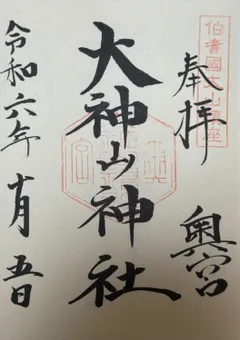 伯耆國大山鎮座
奉拝
奥宮
大神山神社
令和六年十月五日